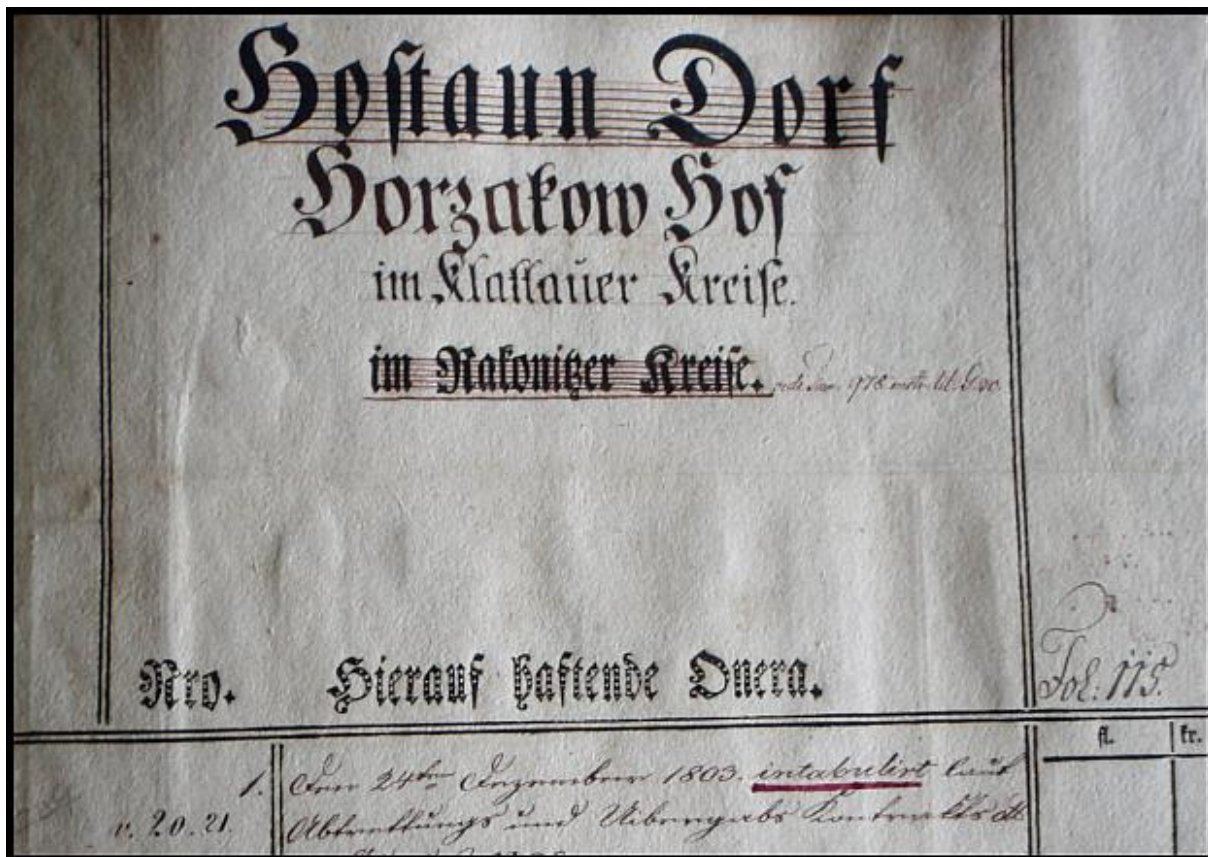 Hostaun Dorf
Horzakow Hof
im Klattauer Kreise.
im Rakonitzer Kreise.
978
Nro. Hierauf haftende Onera.
Fol: 115.
fl. kr.
1. Den 24ten Dezember 1803. intabulirt laut
v. 20. 21. Abtrettungs und Uibergabs Kontrakts